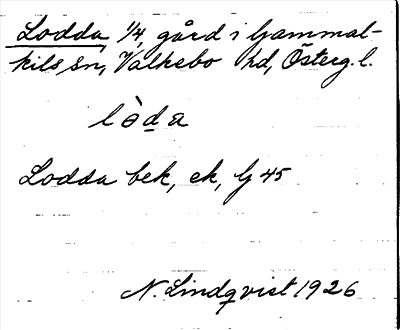 Lodda 1/4 gård i Gammal-
kils sn, Valkebo hd, Österg. l.
lòda
Lodda bek, ek, G 45
N. Lindqvist 1926